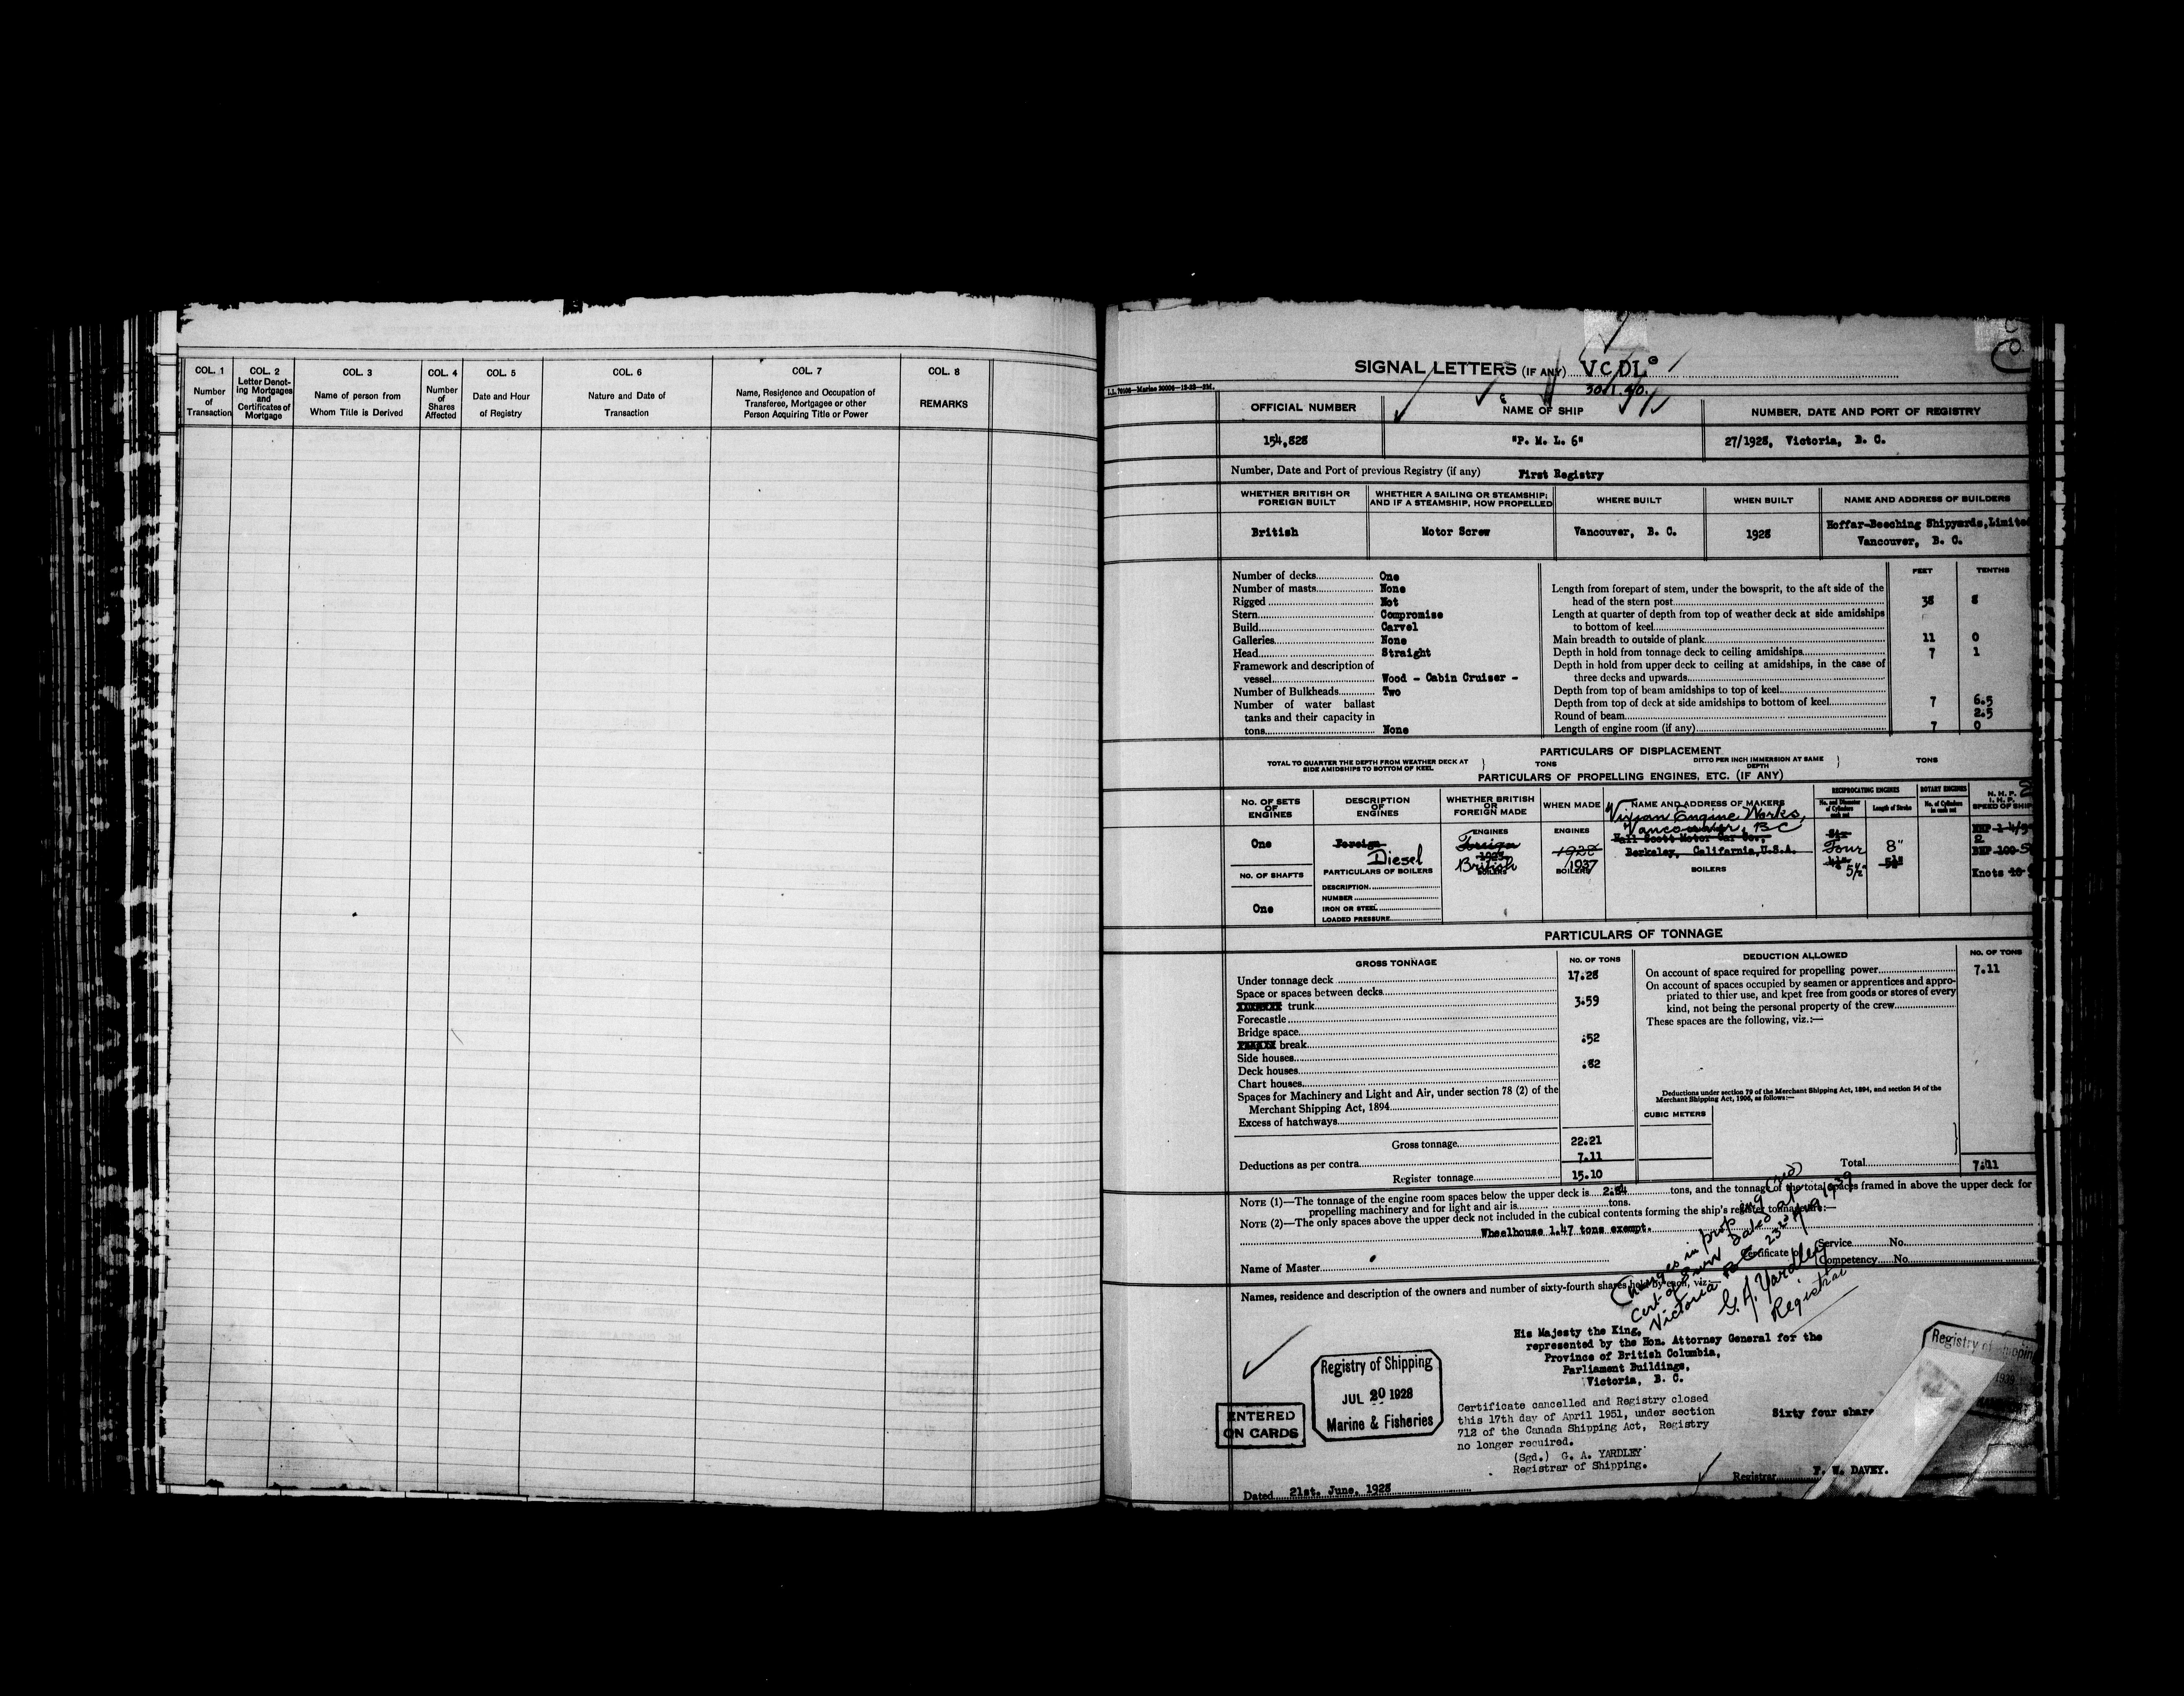 COL. 1
Number
of
Transaction
COL. 2
Letter Denot-
ing Mortgages
and
Certificates of
Mortgage
COL. 3
Name of person from
Whom Title is Derived
COL. 4
Number
of
Shares
Affected
COL. 5
Date and Hour
of Registry
COL. 6
Nature and Date of
Transaction
COL. 7
Name, Residence and Occupation of
Transferee, Mortgagee or other
Person Acquiring Title or Power
COL. 8
REMARKS
SIGNAL LETTERS (IF ANY) VCDL
OFFICIAL NUMBER
NAME OF SHIP
NUMBER, DATE AND PORT OF REGISTRY
154,828
"P. M. L. 6"
27/1928, Victoria, B. C.
Number, Date and Port of previous Registry (if any) First Registry
WHETHER BRITISH OR
FOREIGN BUILT
WHETHER A SAILING OR STEAMSHIP;
AND IF A STEAMSHIP, HOW PROPELLED
WHERE BUILT
WHEN BUILT
NAME AND ADDRESS OF BUILDERS
British
Motor Screw
Vancouver, B. C.
1928
Hoffar-Beeching Shipyards, Limited
Vancouver, B. C.
Number of decks One
Number of masts None
Rigged Not
Stern Compromise
Build Carvel
Galleries None
Head Straight
Framework and description of
vessel Wood - Cabin Cruiser -
Number of Bulkheads Two
Number of water ballast
tanks and their capacity in
tons None
FEET TENTHS
Length from forepart of stem, under the bowsprit, to the aft side of the
head of the stern post 38 8
Length at quarter of depth from top of weather deck at side amidships
to bottom of keel
Main breadth to outside of plank 11 0
Depth in hold from tonnage deck to ceiling amidships 7 1
Depth in hold from upper deck to ceiling at amidships, in the case of
three decks and upwards
Depth from top of beam amidships to top of keel
Depth from top of deck at side amidships to bottom of keel 7 6.5
Round of beam 2.5
Length of engine room (if any) 7 0
PARTICULARS OF DISPLACEMENT
TOTAL TO QUARTER THE DEPTH FROM WEATHER DECK AT
SIDE AMIDSHIPS TO BOTTOM OF KEEL
TONS
DITTO PER INCH IMMERSION AT SAME
DEPTH
TONS
PARTICULARS OF PROPELLING ENGINES, ETC. (IF ANY)
No. OF SETS
OF
ENGINES
DESCRIPTION
OF
ENGINES
WHETHER BRITISH
OR
FOREIGN MADE
WHEN MADE
NAME AND ADDRESS OF MAKERS
RECIPROCATING ENGINES
No. and Diameter
of Cylinders
in each set
Length of Stroke
ROTARY ENGINES
No. of Cylinders
in each set
N. H. P.
I. H. P.
SPEED OF SHIP
Vivian Engine Works,
Vancouver, BC
One
Foreign
Diesel
ENGINES
Foreign
British
BOILERS
ENGINES
1928
1937
BOILERS
Hall Scott Motor Car Co.,
Berkeley, California, U.S.A.
BOILERS
Six
Four
5½"
8"
BHP 100
Knots 10
No. OF SHAFTS
One
PARTICULARS OF BOILERS
DESCRIPTION
NUMBER
IRON OR STEEL
LOADED PRESSURE
PARTICULARS OF TONNAGE
GROSS TONNAGE
NO. OF TONS
Under tonnage deck 17.28
Space or spaces between decks
trunk 3.59
Forecastle
Bridge space
break .52
Side houses
Deck houses .82
Chart houses
Spaces for Machinery and Light and Air, under section 78 (2) of the
Merchant Shipping Act, 1894
Excess of hatchways
Gross tonnage 22.21
Deductions as per contra 7.11
Register tonnage 15.10
DEDUCTION ALLOWED
NO. OF TONS
On account of space required for propelling power 7.11
On account of spaces occupied by seamen or apprentices and appro-
priated to thier use, and kpet free from goods or stores of every
kind, not being the personal property of the crew
These spaces are the following, viz.:—
Deductions under section 79 of the Merchant Shipping Act, 1894, and section 54 of the
Merchant Shipping Act, 1906, as follows:—
CUBIC METERS
Total 7.11
NOTE (1)—The tonnage of the engine room spaces below the upper deck is tons, and the tonnage of the total spaces framed in above the upper deck for
propelling machinery and for light and air is tons.
NOTE (2)—The only spaces above the upper deck not included in the cubical contents forming the ship's register tonnage are:—
Wheelhouse 1.47 tons exempt.
Name of Master
Certificate of
Service No.
Competency No.
Changes in prop eng
Cert of Surv dated at
Victoria BC 23rd 1939
G. A. Yardley
Registrar
Names, residence and description of the owners and number of sixty-fourth shares held by each, viz:—
His Majesty the King,
represented by the Hon. Attorney General for the
Province of British Columbia,
Parliament Buildings,
Victoria, B. C.
Sixty four share
Registry of Shipping
JUL 20 1928
Marine & Fisheries
ENTERED
ON CARDS
Certificate cancelled and Registry closed
this 17th day of April 1951, under section
712 of the Canada Shipping Act, Registry
no longer required.
(Sgd.) G. A. YARDLEY
Registrar of Shipping.
Registry of Shipping
Dated 21st. June, 1928
Registrar F. W. DAVEY.